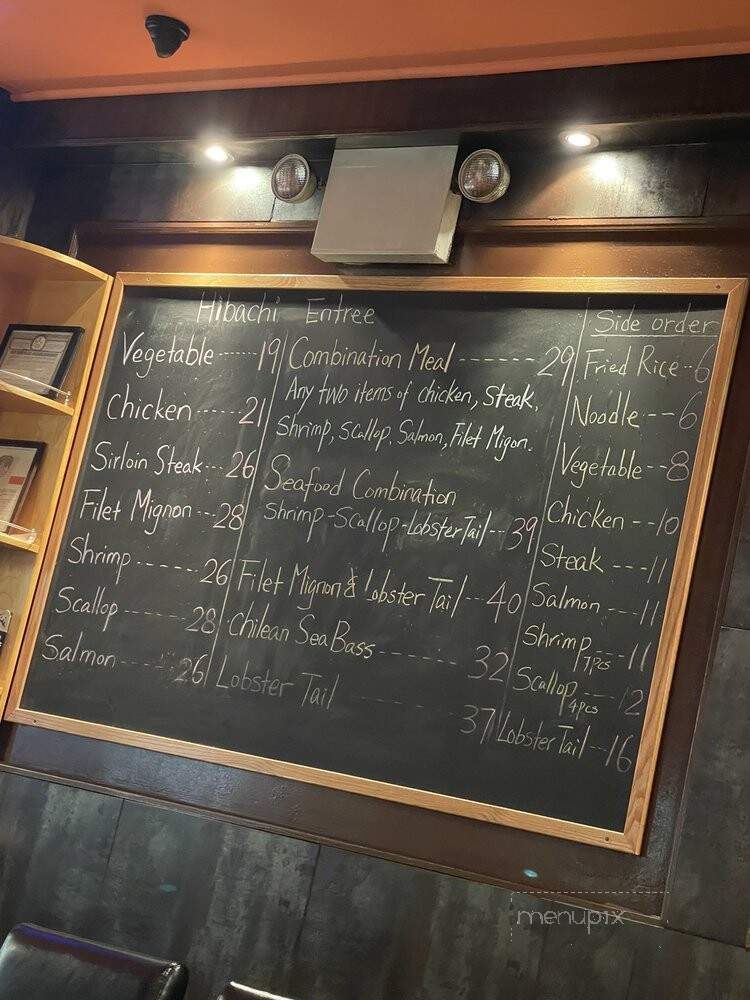 Hibachi Entree
Vegetable ------ 19
Chicken ----- 21
Sirloin Steak --- 26
Filet Mignon --- 28
Shrimp ------ 26
Scallop ------ 28
Salmon ------ 26
Combination Meal ------- 29
Any two items of chicken, Steak,
Shrimp, Scallop, Salmon, Filet Migon.
Seafood Combination
Shrimp-Scallop-Lobster Tail -- 39
Filet Mignon & Lobster Tail -- 40
Chilean Sea Bass ------ 32
Lobster Tail ------ 37
Side order
Fried Rice -- 6
Noodle --- 6
Vegetable -- 8
Chicken --- 10
Steak --- 11
Salmon --- 11
Shrimp --- 11
7pcs
Scallop --- 12
4pcs
Lobster Tail -- 16
menupix